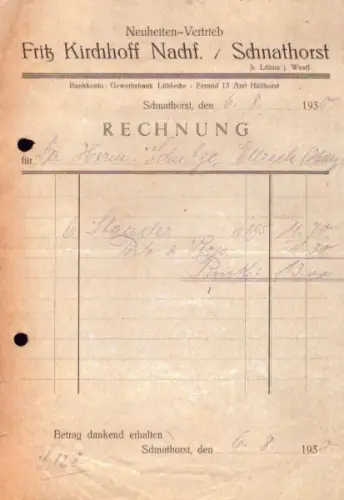 Neuheiten-Vertrieb
Fritz Kirchhoff Nachf. / Schnathorst
Kr. Lübbecke i. Westf.
Bankkonto: Gewerbebank Lübbecke - Fernruf 15 Amt Hüllhorst
Schnathorst, den 6. 8. 1930.
RECHNUNG
für Herrn Schulze, Ellrich
6 Ständer
Porto &
13.00
Betrag dankend erhalten
Schnathorst, den 6. 8. 1930.